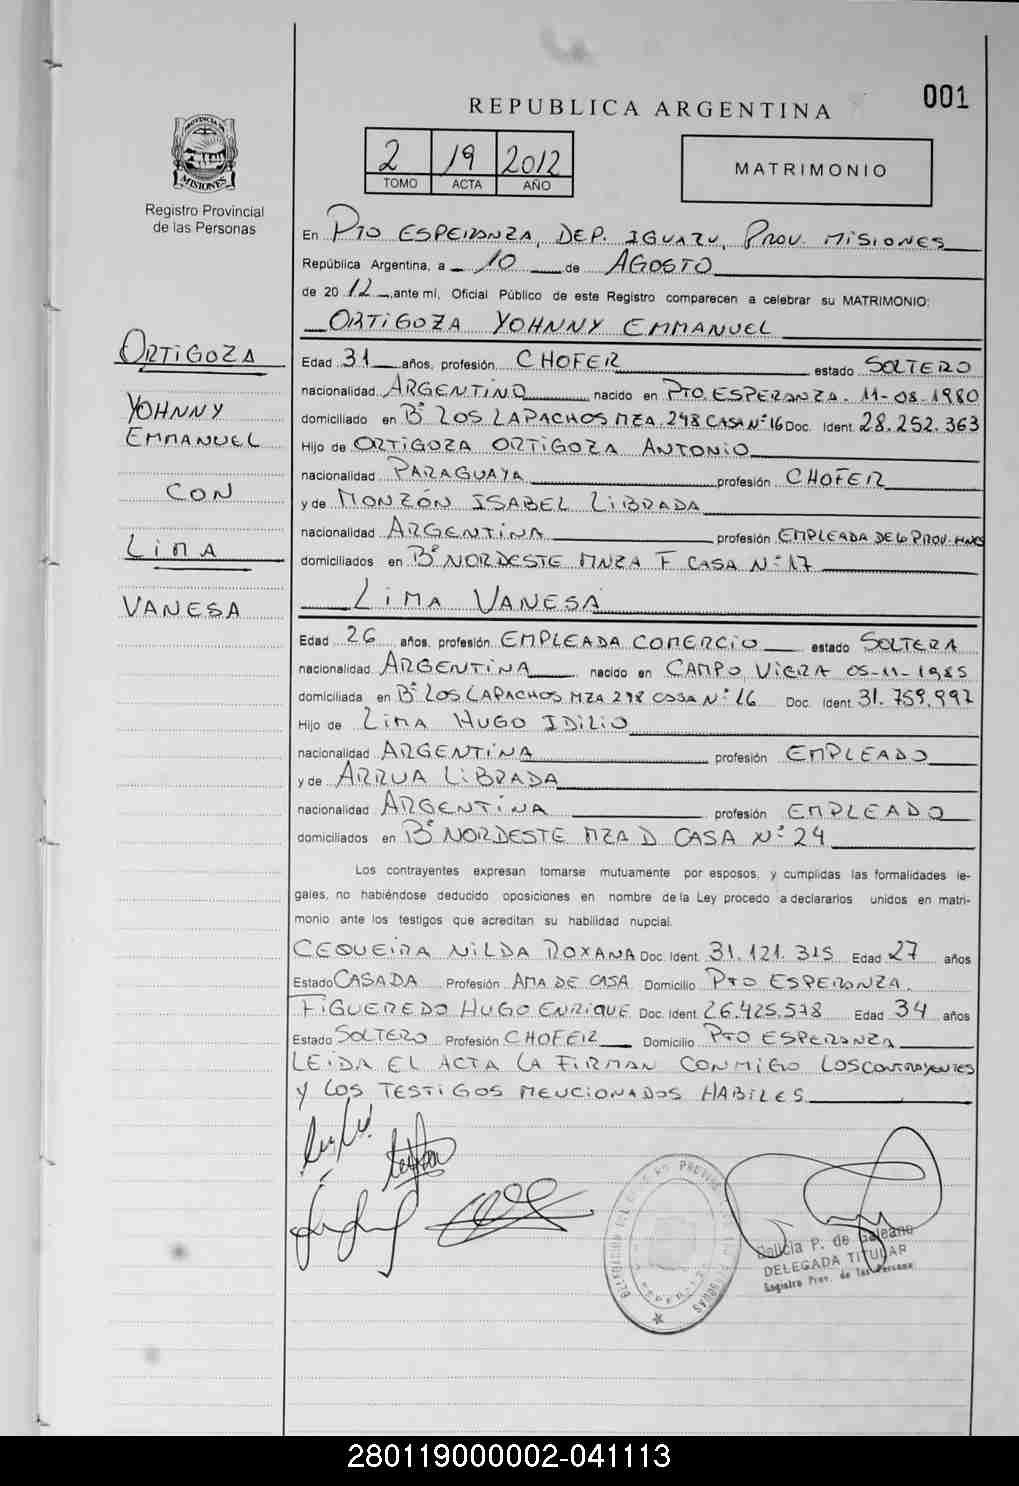 001
REPUBLICA ARGENTINA
PROVINCIA DE
MISIONES
Registro Provincial
de las Personas
2 19 2012
TOMO ACTA AÑO
MATRIMONIO
En PTO ESPERANZA, DEP. IGUAZU, PROV. MISIONES
República Argentina, a 10 de AGOSTO
de 2012, ante mi, Oficial Público de este Registro comparecen a celebrar su MATRIMONIO:
ORTIGOZA YOHNNY EMMANUEL
ORTIGOZA
YOHNNY
EMMANUEL
CON
LIMA
VANESA
Edad 31 años, profesión CHOFER estado SOLTERO
nacionalidad ARGENTINO nacido en PTO. ESPERANZA. 11-08-1980
domiciliado en Bº LOS LAPACHOS MZA 298 CASA Nº 16 Doc. Ident. 28.252.363
Hijo de ORTIGOZA ORTIGOZA ANTONIO
nacionalidad PARAGUAYA profesión CHOFER
y de MONZÓN ISABEL LIBRADA
nacionalidad ARGENTINA profesión EMPLEADA DE LA PROV. MNES
domiciliados en Bº NORDESTE MNZA F CASA Nº 17
LIMA VANESA
Edad 26 años, profesión EMPLEADA COMERCIO estado SOLTERA
nacionalidad ARGENTINA nacido en CAMPO VIERA 05-11-1985
domiciliada en Bº LOS LAPACHOS MZA 298 CASA Nº 16 Doc. Ident. 31.759.997
Hijo de LIMA HUGO IDILIO
nacionalidad ARGENTINA profesión EMPLEADO
y de ARRUA LIBRADA
nacionalidad ARGENTINA profesión EMPLEADO
domiciliados en Bº NORDESTE MZA D CASA Nº 24
Los contrayentes expresan tomarse mutuamente por esposos, y cumplidas las formalidades le-
gales, no habiéndose deducido oposiciones en nombre de la Ley procedo a declararlos unidos en matri-
monio ante los testigos que acreditan su habilidad nupcial.
CEQUEIRA NILDA ROXANA Doc. Ident. 31.121.315 Edad 27 años
Estado CASADA Profesión AMA DE CASA Domicilio PTO ESPERANZA.
FIGUEREDO HUGO ENRIQUE Doc. Ident. 26.425.578 Edad 34 años
Estado SOLTERO Profesión CHOFER Domicilio PTO ESPERANZA
LEIDA EL ACTA LA FIRMAN CONMIGO LOS CONTRAYENTES
Y LOS TESTIGOS MENCIONADOS HABILES
P. de Galeano
DELEGADA TITULAR
Registro Prov. de las Personas
280119000002-041113